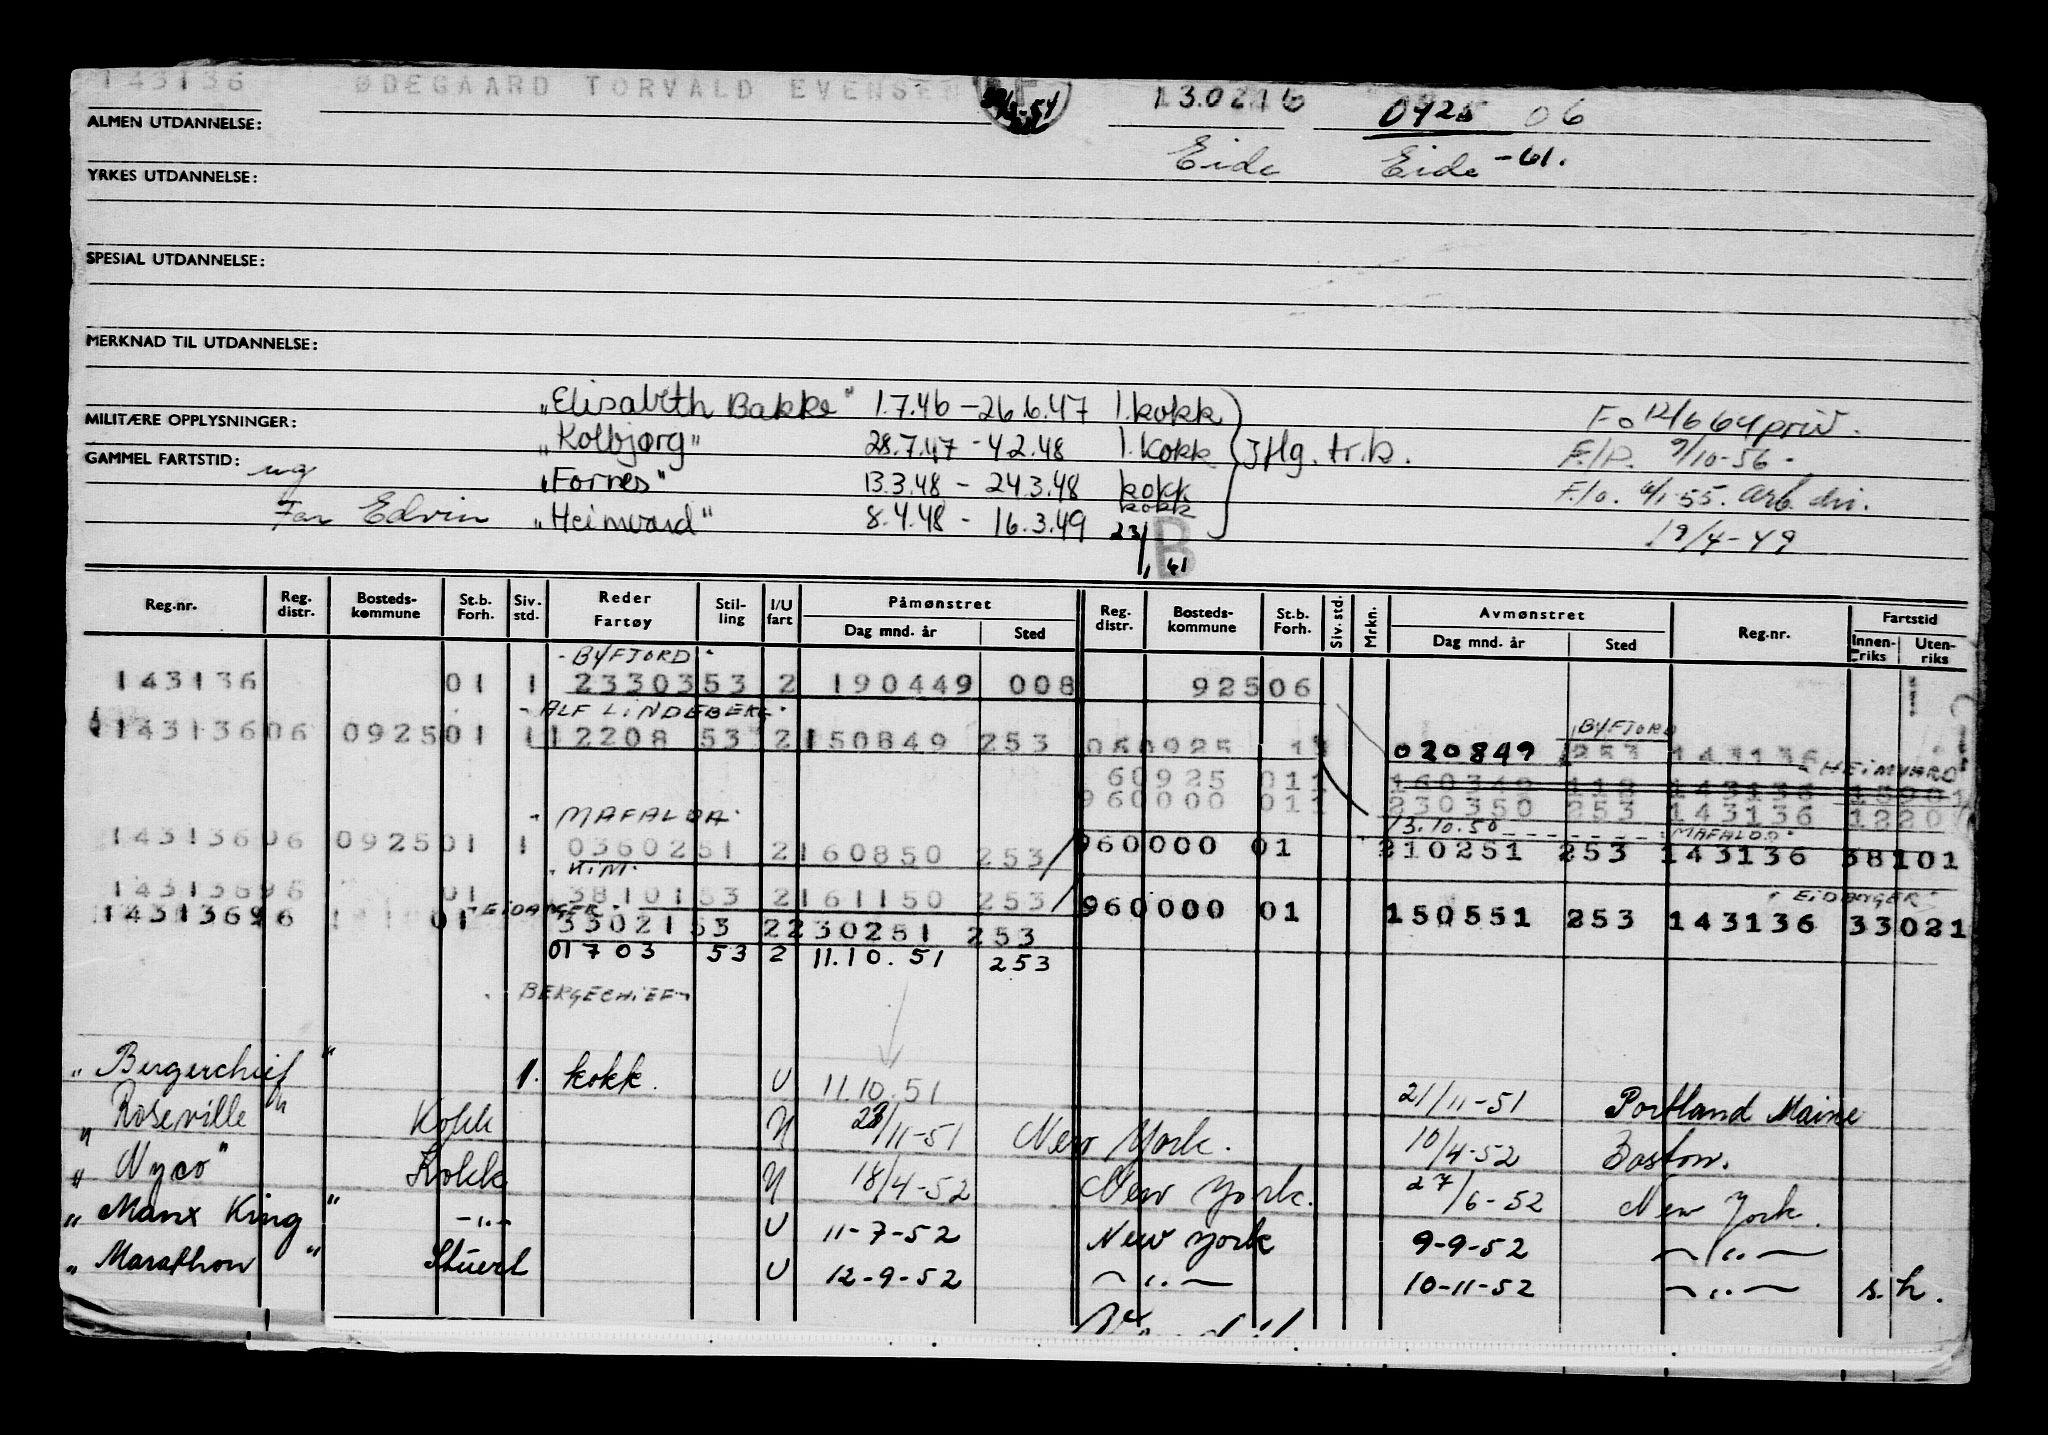 143136 ØDEGAARD TORVALD EVENSEN 13.0216 0925 06
ALMEN UTDANNELSE:
Eide Eide -61.
YRKES UTDANNELSE:
SPESIAL UTDANNELSE:
MERKNAD TIL UTDANNELSE:
"Elisabeth Bakke" 1.7.46 - 26.6.47 1.kokk
MILITÆRE OPPLYSNINGER: Fo 12/6 64 priv.
"Kolbjørg" 28.7.47 - 4.2.48 1.kokk } Iflg. tr.k.
GAMMEL FARTSTID: ug F./P. 9/10-56 -
"Fornes" 13.3.48 - 24.3.48 kokk
F/o. 6/1-55. Arb. dir.
Far Edvin "Heimvard" 8.4.48 - 16.3.49 kokk
19/4-49
23/1 61 B
Reg.nr. Reg. distr. Bosteds-kommune St.b. Forh. Siv. std. Reder Fartøy Stil-ling I/U fart Påmønstret Dag mnd. år Sted Reg. distr. Bosteds-kommune St.b. Forh. Siv. std. Mrkn. Avmønstret Dag mnd. år Sted Reg.nr. Fartstid Innen-riks Uten-riks
- BYFJORD -
143136 01 1 23303 53 2 190449 008 92506
- ALF LINDEBERG - BYFJORD
143136 06 0925 01 1 12208 53 2 150849 253 060925 020849 253 143136
HEIMVARD
60925 011 160349 118 143136 15901
960000 011 230350 253 143136 1220
- MAFALDA - 13.10.50 - MAFALDA -
143136 06 0925 01 1 03602 51 2 160850 253 960000 01 210251 253 143136 38101
- K.M. -
143136 96 01 38101 53 2 161150 253
- EIDANGER - - EIDANGER -
143136 96 01 33021 53 2 230251 253 960000 01 150551 253 143136 33021
01703 53 2 11.10.51 253
- BERGECHIEF -
"Bergerchief" 1. kokk. U 11.10.51 21/11-51 Portland Maine
"Roseville" Kokk U 23/11-51 New York. 10/4-52 Boston.
"Nyco" Kokk U 18/4-52 New York. 27/6-52 New York.
"Manx King" -"- U 11-7-52 New York 9-9-52 -"-
"Marathon" Stuert U 12-9-52 -"- 10-11-52 -"- s.h.